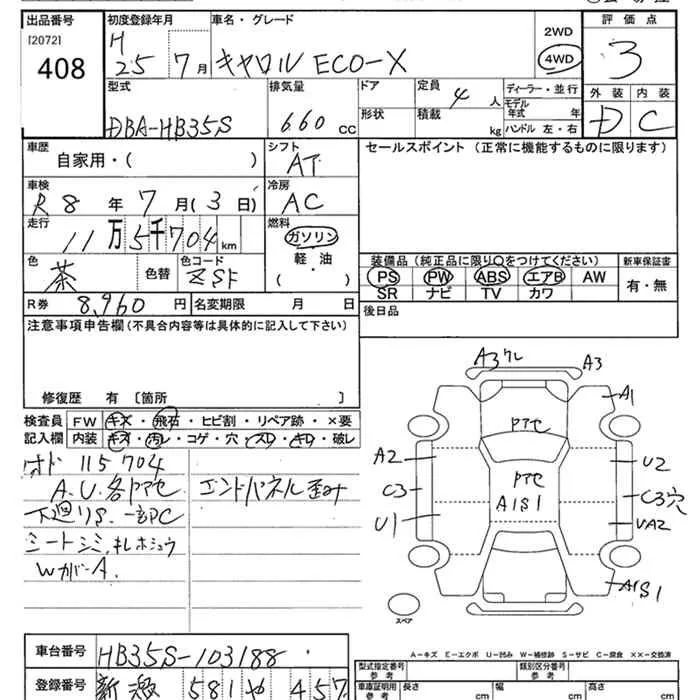 出品番号 初度登録年月 車名・グレード 評価点
[2072] H 2WD
408 25 7月 キャロル ECO-X 4WD 3
型式 排気量 ドア 定員 4 人 ディーラー・並行 外装 内装
DBA-HB35S 660 cc 形状 積載 kg モデル年式 年 D C
ハンドル 左・右
車歴 シフト セールスポイント (正常に機能するものに限ります)
自家用・( ) AT
車検 冷房
R8年 7月(3日) AC
走行 燃料
11万5千704km ガソリン
軽油
色 茶 色替 色コード ZSF ・ ( ) 装備品 (純正品に限り○をつけてください) 新車保証書
PS PW ABS エアB AW 有・無
SR ナビ TV カワ
R券 8,960円 名変期限 月 日 後日品
注意事項申告欄 (不具合内容等は具体的に記入して下さい)
修復歴 有 〔箇所 〕
検査員 FW キズ・飛石・ヒビ割・リペア跡・×要
記入欄 内装 キズ・汚レ・コゲ・穴・スレ・キレ・破レ
オド 115704
A.U.各Pアセ エンドパネル歪み
下廻りS 一部PC
シートシミ、キレホシュウ
WガバーA.
A3ワレ A3
A1
Pアセ
A2 U2
Pアセ
C3 A1S1 C3穴
U1 UA2
A1S1
スペア
A-キズ E-エクボ U-凹み W-補修跡 S-サビ C-腐食 ××-交換済
車台番号 HB35S-103188 型式指定番号 参考 類別区分番号 参考
登録番号 581 や 457 車庫証明用 参考 長さ cm 幅 cm 高さ cm